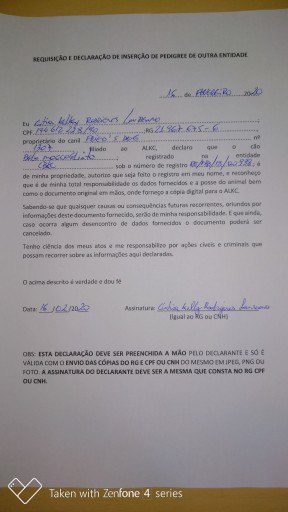 REQUISIÇÃO E DECLARAÇÃO DE INSERÇÃO DE PEDIGREE DE OUTRA ENTIDADE
16 de FEVEREIRO 2020
Eu Kelly Rodrigues
CPF RG
proprietário do canil nº
filiado ao ALKC, declaro que o cão
registrado na entidade
sob o número de registro e
de minha propriedade, autorizo que seja feito o registro em meu nome, e reconheço
que é de minha total responsabilidade os dados fornecidos e a posse do animal bem
como o documento original em mãos, onde forneço a copia digital para o ALKC.
Sabendo-se que quaisquer causas ou consequências futuras recorrentes, oriundos por
informações deste documento fornecido, serão de minha responsabilidade. E que ainda,
caso ocorra algum desencontro de dados fornecidos o documento poderá ser
cancelado.
Tenho ciência dos meus atos e me responsabilizo por ações cíveis e criminais que
possam recorrer sobre as informações aqui declaradas.
O acima descrito é verdade e dou fé
Data: 16/02/2020 Assinatura: Kelly Rodrigues
(Igual ao RG ou CNH)
OBS: ESTA DECLARAÇÃO DEVE SER PREENCHIDA A MÃO PELO DECLARANTE E SÓ É
VÁLIDA COM O ENVIO DAS CÓPIAS DO RG E CPF OU CNH DO MESMO EM JPEG, PNG OU
FOTO. A ASSINATURA DO DECLARANTE DEVE SER A MESMA QUE CONSTA NO RG CPF
OU CNH.
Taken with Zenfone 4 series